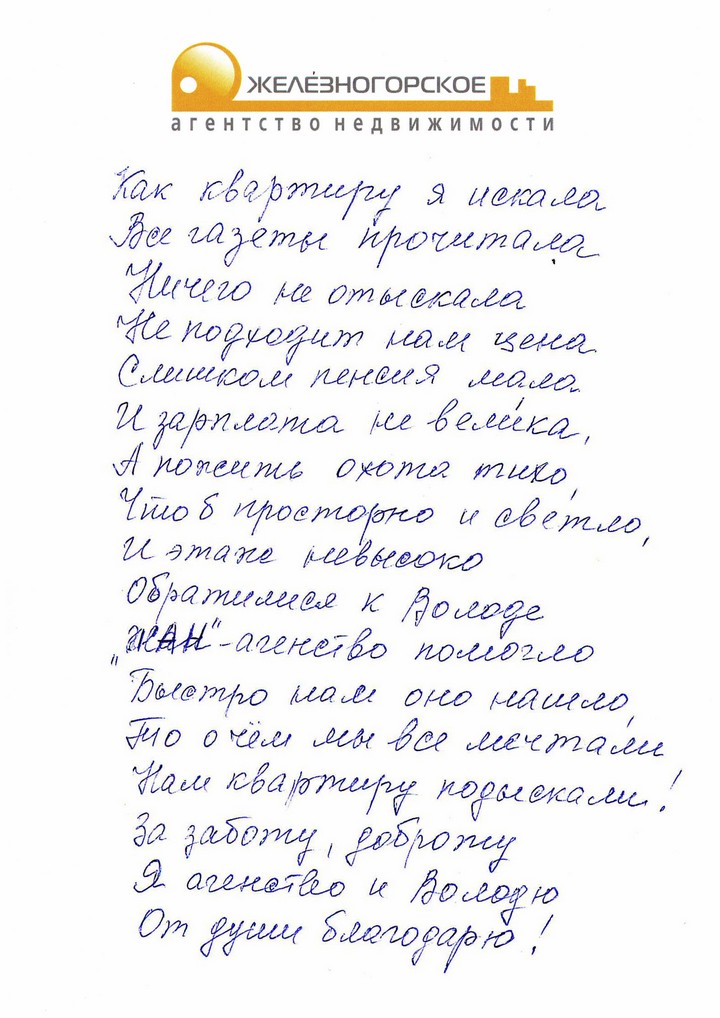 ЖЕЛЕЗНОГОРСКОЕ
агентство недвижимости
Как квартиру я искала
Все газеты прочитала
Ничего не отыскала
Не подходит нам цена
Слишком пенсия мала
И зарплата не велика,
А пожить охота тихо,
Чтоб просторно и светло,
И этаж невысоко
Обратилися к Володе
"ЖАН"-агенство помогло
Быстро нам оно нашло,
То о чём мы все мечтали
Нам квартиру подыскали!
За заботу, доброту
Я агенство и Володю
От души благодарю!